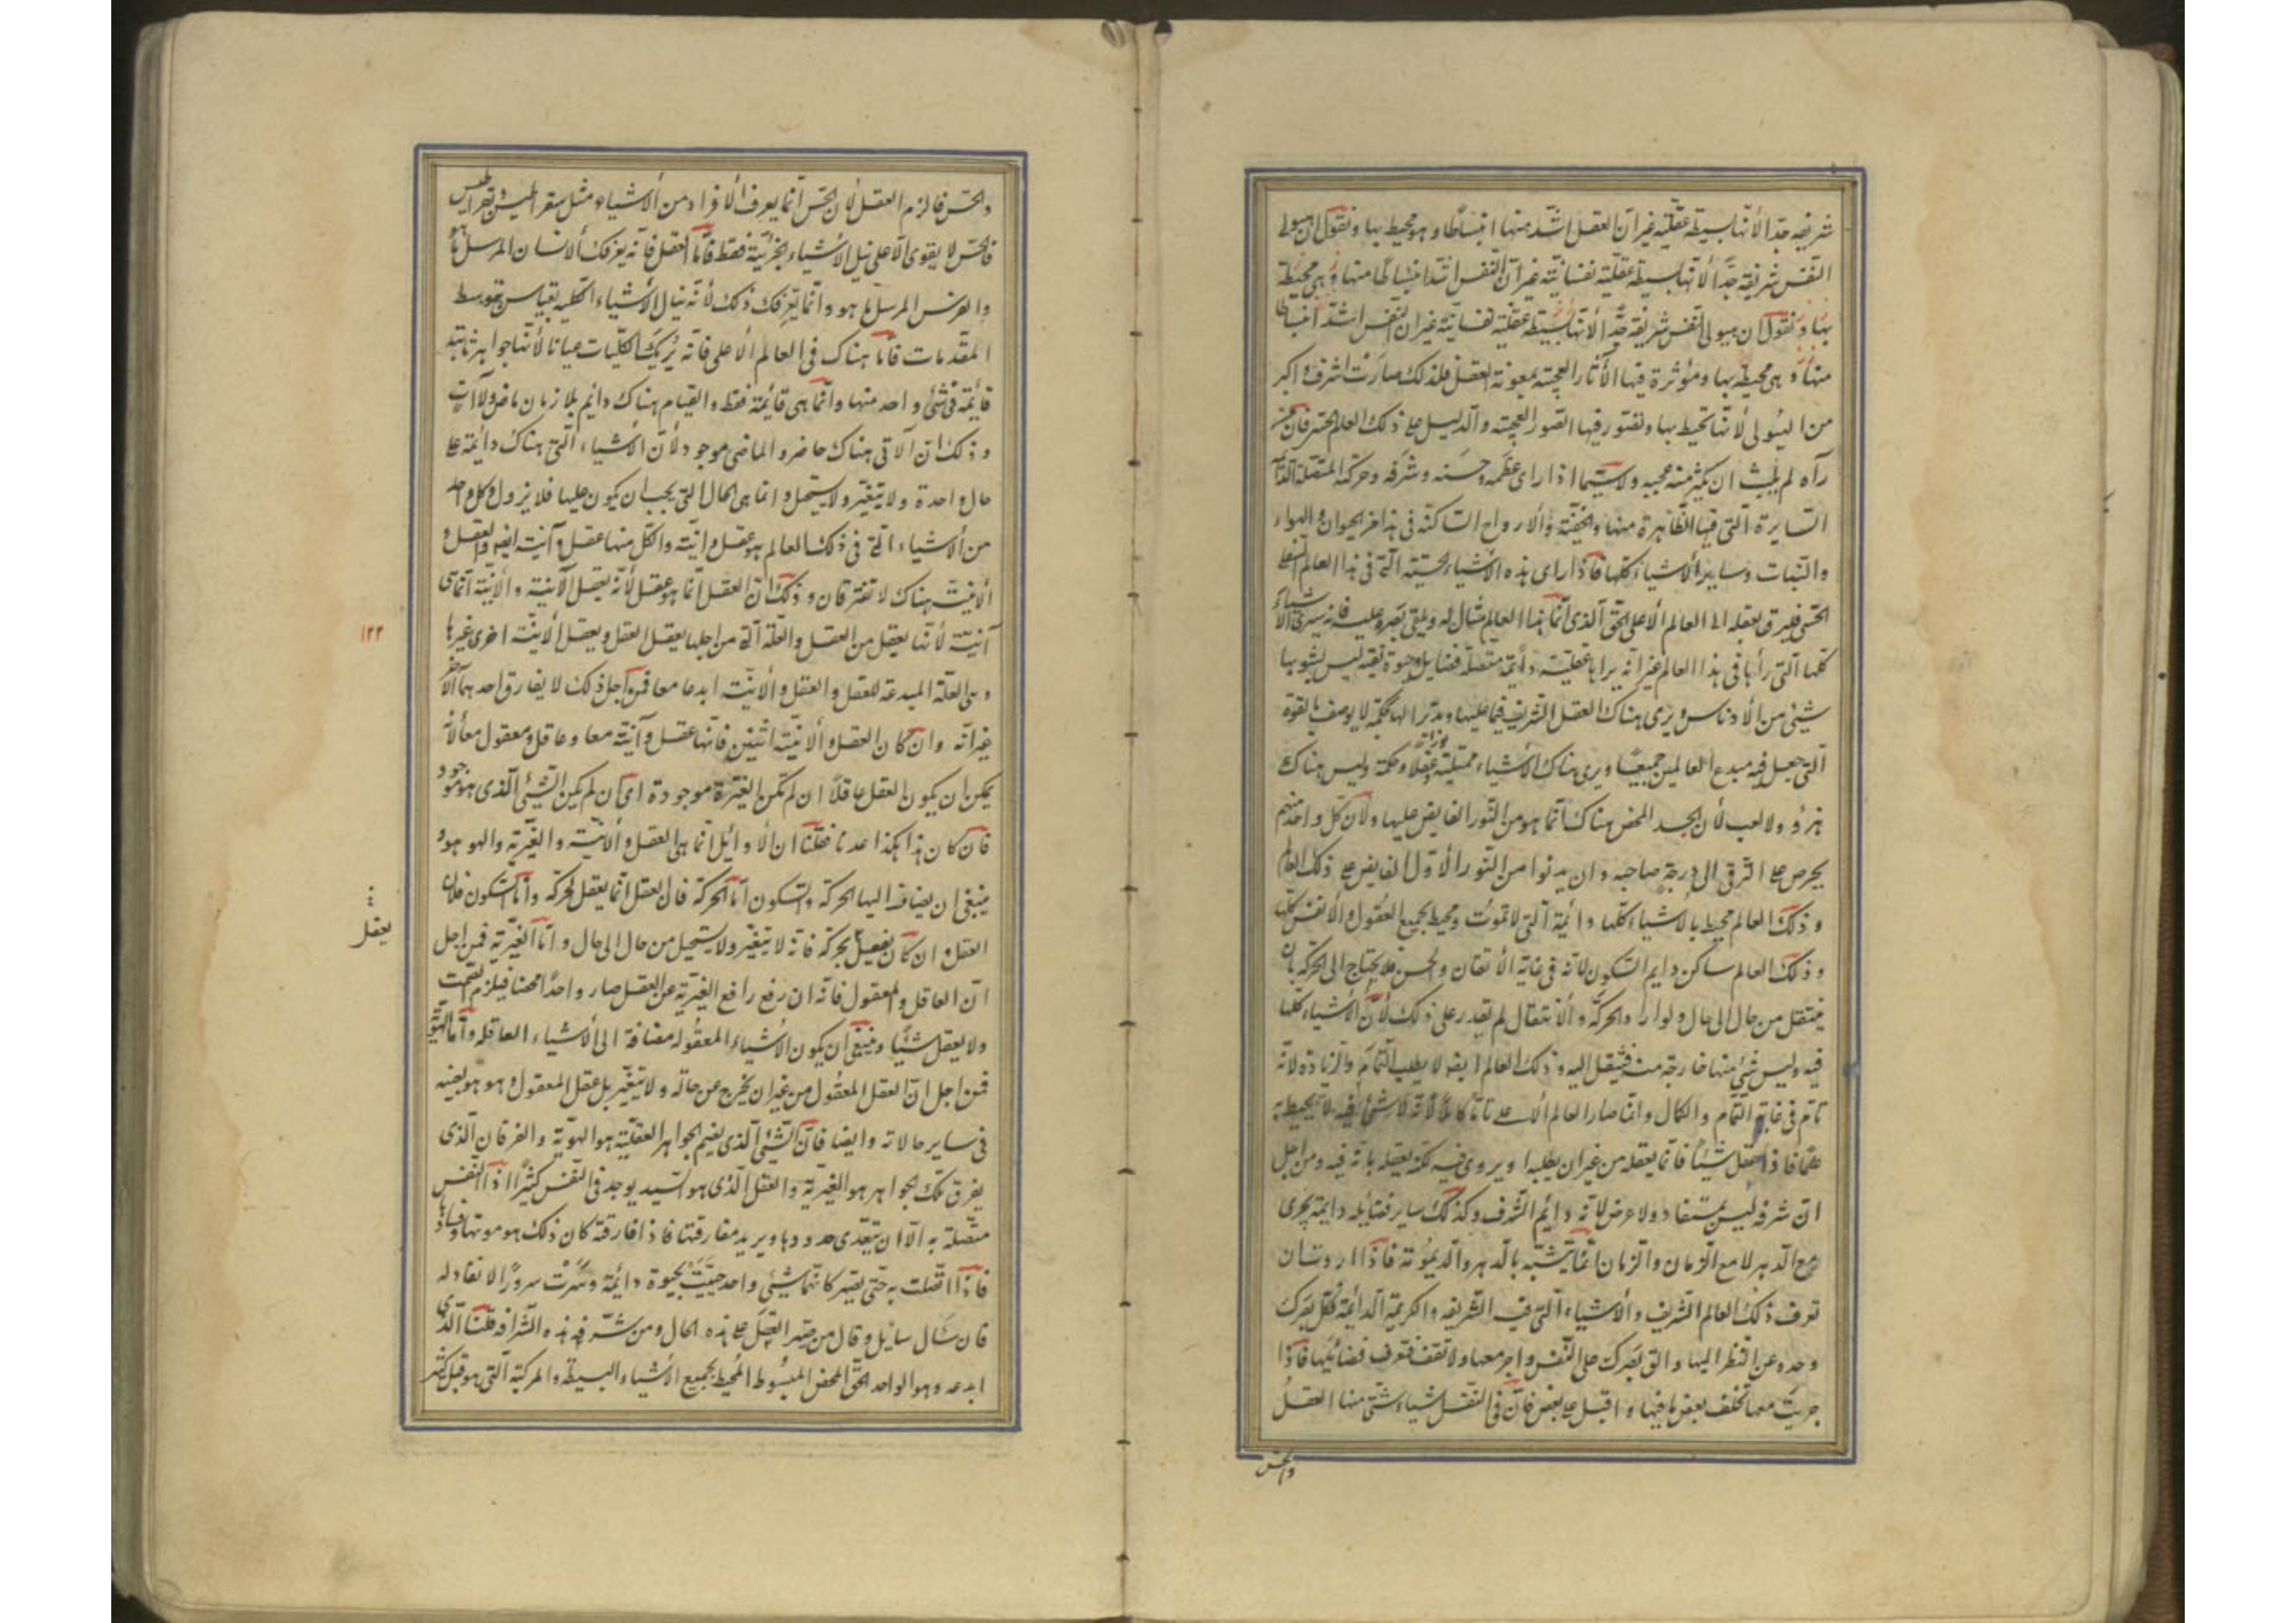 شريفه جدّا لأنّها بسيطة عقليّة غير أنّ العقل اشدّ منها انبساطا وهو محيط بها ونقول ان هيولى
النفس شريفة جدّاً لأنّها بسيطة عقليّة نفسانيّة غير أنّ النفس اشدّ انبساطا منها وهى محيطة
بها ونقول ان هيولى النفس شريفة جدّاً لأنّها بسيطة عقليّة نفسانيّة غير ان النفس اشدّ انبساطا
منها وهى محيطة بها ومؤثرة فيها الآثار العجيبة بمعونة العقل فلذلك صارت اشرف واكبر
من الهيولى لأنّها تحيط بها وتصوّر فيها الصّور العجيبة والدّليل على ذلك العالم الحسّى فان من
رآه لم يلبث ان يكثر منه عجبه ولا سيّما اذا راى عظمه وحسنه وشرفه وحركته المتّصلة الدّائمة
السّايرة الّتى فيها الظّاهرة منها والخفيّة والأرواح السّاكنة فى هذا من الحيوان والهواء
والنّبات وساير الأشياء كلّها فاذا راى هذه الأشياء الحسّيّة الّتى فى هذا العالم السّفلى
الحسّى فليرق بعقله الى العالم الأعلى الحقّ الّذى انّما هذا العالم مثال له ويلقى بصره عليه فانه سيرى الأشياء
كلّها الّتى رآها فى هذا العالم غير انّه يراها عقليّة دائمة متّصلة بفضايل وحيوة نقيّة ليس يشوبها
شىء من الأدناس ويرى هناك العقل الشريف قيّما عليها ومدبّرا لها بحكمة لا يوصف بالقوة
الّتى جعل فيه مبدع العالمين جميعًا ويرى هناك الأشياء ممتلية نورا وعقلا وحكمة وليس هناك
هزؤ ولا لعب لأن الجد المحض هناك انّما هو من النّور الفايض عليها ولأن كلّ واحد منهم
يحرص على الترقى الى درجة صاحبه وان يدنوا من النّور الأوّل الفايض على ذلك العالم
وذلك العالم محيط بالأشياء كلّها دائمة الّتى لا تموت ومحيط بجميع العقول والأنفس كلّها
وذلك العالم ساكن دايم السّكون لأنّه فى غاية الأتقان والحسن فلا يحتاج الى الحركة بان
ينتقل من حال الى حال ولو اراد الحركة والأنتقال لم يقدر على ذلك لأنّ الأشياء كلّها
فيه وليس شىء منها خارجة منه فينتقل اليه وذلك العالم ايضا لا يطلب التّمام والزّيادة لانّه
تامّ فى غاية التّمام والكمال وانّما صار العالم الأعلى تامّا كاملاً لأنّه لا شىء فيه لا يحيط به
علمًا فاذا عقل شيئا فانّما يعقله من غير ان يطلبه او يروى فيه لكنّه يعقله بانّه فيه ومن اجل
انّ شرفه ليس بمستفاد ولا عرض لأنّه دايم الشّرف وكذلك ساير فضايله دايمة يجرى
مع الدّهر لا مع الزّمان والزّمان انّما يتشبّه بالدّهر والدّيمومة فاذا اردت ان
تعرف ذلك العالم الشّريف والأشياء الّتى فيه الشّريفة والكريمة الدائمة فكلّ بصرك
وحده عن النّظر اليها والق بصرك على النّفس واجر معها ولا تقف فتعرف فضائلها فاذا
جريت معها تخلف بعض ما فيها واقبل على بعض فانّ فى النّفس اشياء شتّى منها العقل
والحس
والحسّ فالزم العقل لأن الحسّ انّما يعرف الأفراد من الأشياء مثل سقراطيس وبقراطيس
فالحسّ لا يقوى الّا على نيل الأشياء الجزئيّة فقط فامّا العقل فانّه يعرفك الانسان المرسل ما هو
والفرس المرسل ما هو وانّما يعرفك ذلك لأنّه ينال الأشياء الكلّية بقياس بتوسط
المقدمات فامّا هناك فى العالم الأعلى فانّه يريك الكلّيات عيانا لأنّها جواهر ثابتة
قائمة فى شىء واحد منها وانّما هى قائمة فقط والقيام هناك دائم بلا زمان ماض ولا آت
وذلك انّ الآتى هناك حاضر والماضى موجود لأن الأشياء الّتى هناك دائمة على
حال واحدة ولا تتغيّر ولا يستحيل وانما هى الحال الّتى يجب ان يكون عليها فلا يزول وكل واحد
من الأشياء الّتى فى ذلك العالم هو عقل وانيّة والكل منها عقل وآنية ايضا والعقل و
الأنيّة هناك لا تفترقان وذلك انّ العقل انّما هو عقل لأنّه يعقل الآنية والأنيّة انّما هى
آنيّة لأنّها يعقل من العقل والعلّة الّتى من اجلها يعقل العقل ويعقل الأنيّة اخرى غيرها
وهى العلّة المبدعة للعقل والعقل والأنيّة ابدعا معا فمن اجل ذلك لا يفارق احدهما الآخر
غير انّه وان كان العقل والأنيّة اثنين فانّها عقل وآنيّة معا وعاقل ومعقول معا لأنّه
يمكن ان يكون العقل عاقلا ان لم تكن الغيريّة موجودة اى ان لم يكن الشّىء الّذى هو موجود
فان كان هذا هكذا عدنا فقلنا ان الأوائل انّما هى العقل والأنيّة والغيريّة والهو هو و
ينبغى ان يضاف اليها الحركة والسّكون امّا الحركة فان العقل انّما يعقل بحركة وامّا السّكون فلان
العقل وان كان يفعل بحركة فانّه لا يتغيّر ولا يستحيل من حال الى حال وامّا الغيريّة فمن اجل
انّ العاقل والمعقول فانّه ان رفع رافع الغيريّة عن العقل صار واحدًا محضا فيلزم الصّمت
ولا يعقل شيئًا وينبغى ان يكون الأشياء المعقوله مضافة الى الأشياء العاقلة وامّا الهويّة
فمن اجل انّ العقل المعقول من غير ان يخرج عن حاله ولا يتغيّر بل عقل المعقول وهو هو بعينه
فى ساير حالاته وايضا فانّ الشّىء الّذى يضم الجواهر العقليّة هو الهويّة والفرقان الّذى
يفرق تلك الجواهر هو الغيريّة والعقل الّذى هو السّيد يوجد فى النّفس كثيرًا اذا النّفس
متّصلة به الّا ان تتعدّى حدودها ويريد مفارقتها فاذا فارقته كان ذلك هو موتها وفسادها
فاذا اتّصلت به حتّى يصير كأنّهما شىء واحد حييت بحيوة دائمة وسرّت سرورًا لا نفاد له
فان سَال سائل وقال من صيّر العقل على هذه الحال ومن شرّفه هذه الشّرافة قلنا الّذى
ابدعه وهو الواحد الحقّ المحض المبسُوط المُحيط بجميع الأشياء البسيطة والمركبة الّتى هو قبل كثير
١٢٢
يعقل